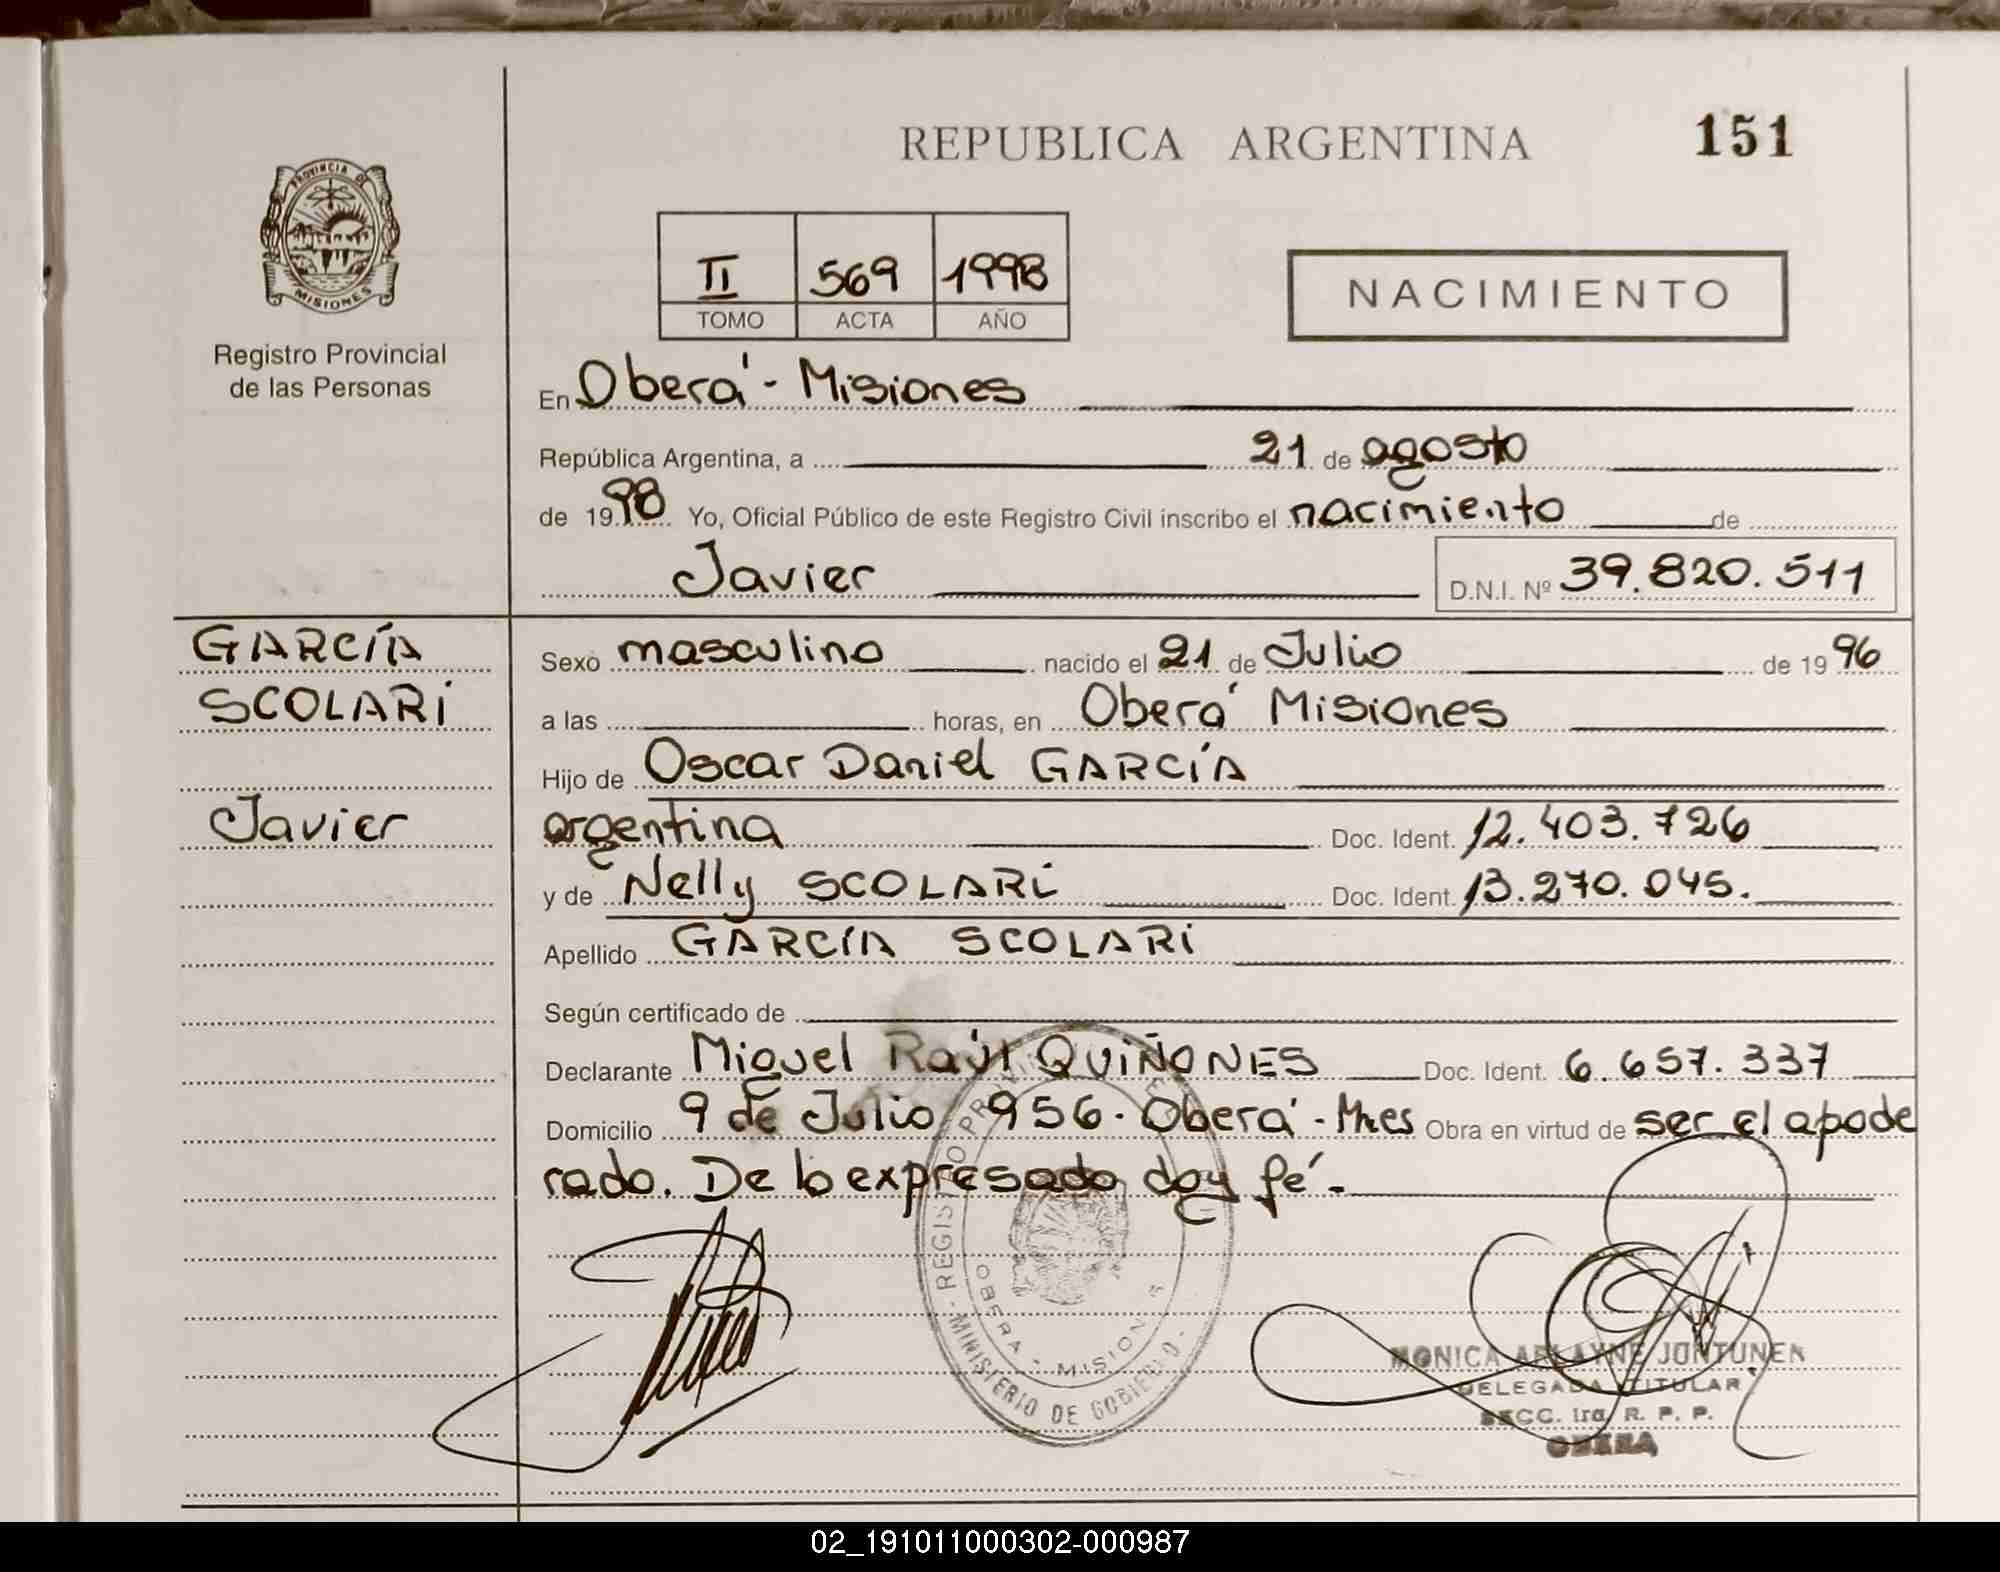 REPUBLICA ARGENTINA
151
PROVINCIA DE
MISIONES
Registro Provincial
de las Personas
II 569 1998
TOMO ACTA AÑO
NACIMIENTO
En Oberá - Misiones
República Argentina, a 21 de agosto
de 1998 Yo, Oficial Público de este Registro Civil inscribo el nacimiento de
Javier D.N.I. Nº 39.820.511
GARCÍA
SCOLARI
Javier
Sexo masculino nacido el 21 de Julio de 1996
a las horas, en Oberá Misiones
Hijo de Oscar Daniel GARCÍA
argentina Doc. Ident. 12.403.726
y de Nelly SCOLARI Doc. Ident. 13.270.045.
Apellido GARCÍA SCOLARI
Según certificado de
Declarante Miguel Raúl QUIÑONES Doc. Ident. 6.657.337
Domicilio 9 de Julio 956 - Oberá - Mnes Obra en virtud de ser el apode
rado. De lo expresado doy fé.-
MINISTERIO DE GOBIERNO
OBERA - MISIONES
MONICA ARLAYNE JUNTUNEN
DELEGADA TITULAR
SECC. 1ra. R. P. P.
OBERA
02_191011000302-000987